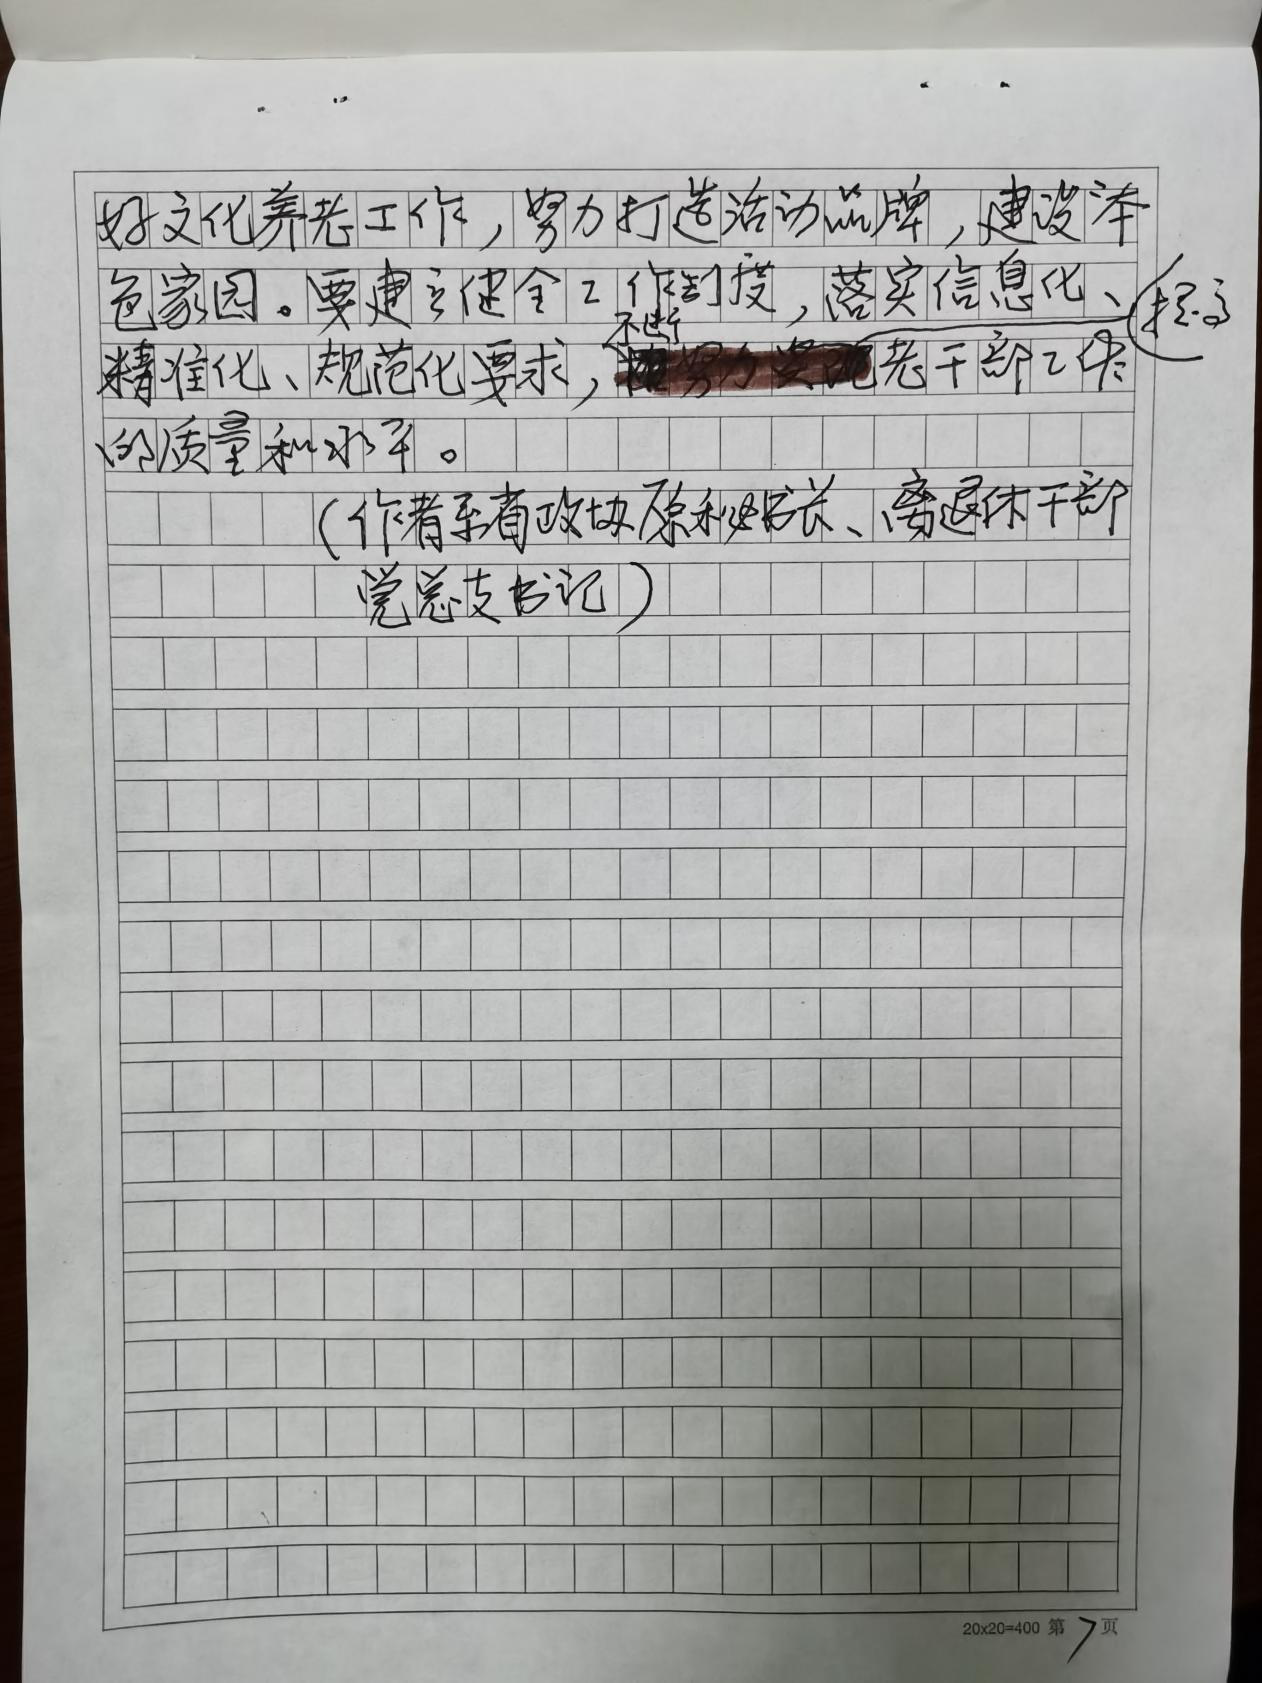 好文化养老工作，努力打造活动品牌，建设本
色家园。要建立健全工作制度，落实信息化、
提高
不断
精准化、规范化要求，老干部工作
的质量和水平。
（作者系省政协原秘书长、离退休干部
党总支书记）
20x20=400 第7页